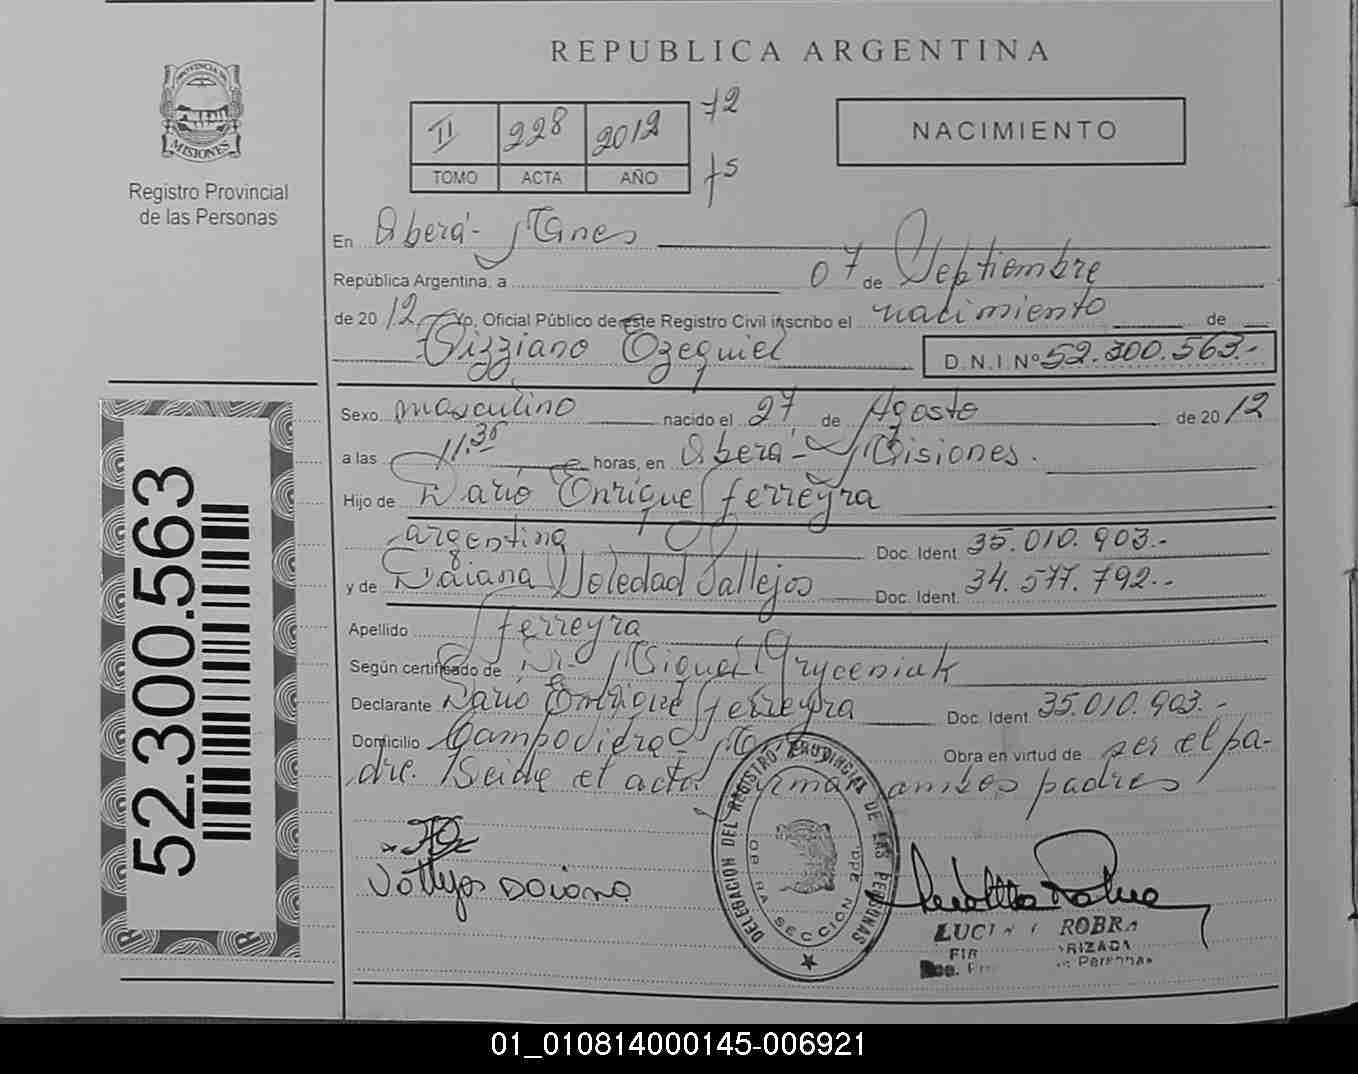 REPUBLICA ARGENTINA
PROVINCIA DE
MISIONES
Registro Provincial
de las Personas
II 228 2012 72
TOMO ACTA AÑO f5
NACIMIENTO
En Oberá - Mnes
República Argentina, a 07 de Septiembre
de 2012 Yo, Oficial Público de este Registro Civil inscribo el nacimiento de
Tizziano Ezequiel D.N.I. Nº 52.300.563.-
Sexo masculino nacido el 27 de Agosto de 2012
a las 11.35 horas, en Oberá - Misiones.
Hijo de Darío Enrique Ferreyra
argentina Doc. Ident. 35.010.903.-
y de Daiana Soledad Vallejos Doc. Ident. 34.577.792.-
Apellido Ferreyra
Según certificado de Dr. Miguel Gryceniuk
Declarante Darío Enrique Ferreyra Doc. Ident 35.010.903.-
Domicilio Campo Viera - Mnes Obra en virtud de ser el pa-
dre. Leída el acta firman ambos padres
Vallejos Daiana
DELEGACION DEL REGISTRO PROVINCIAL DE LAS PERSONAS
SECCION
52.300.563
01_010814000145-006921